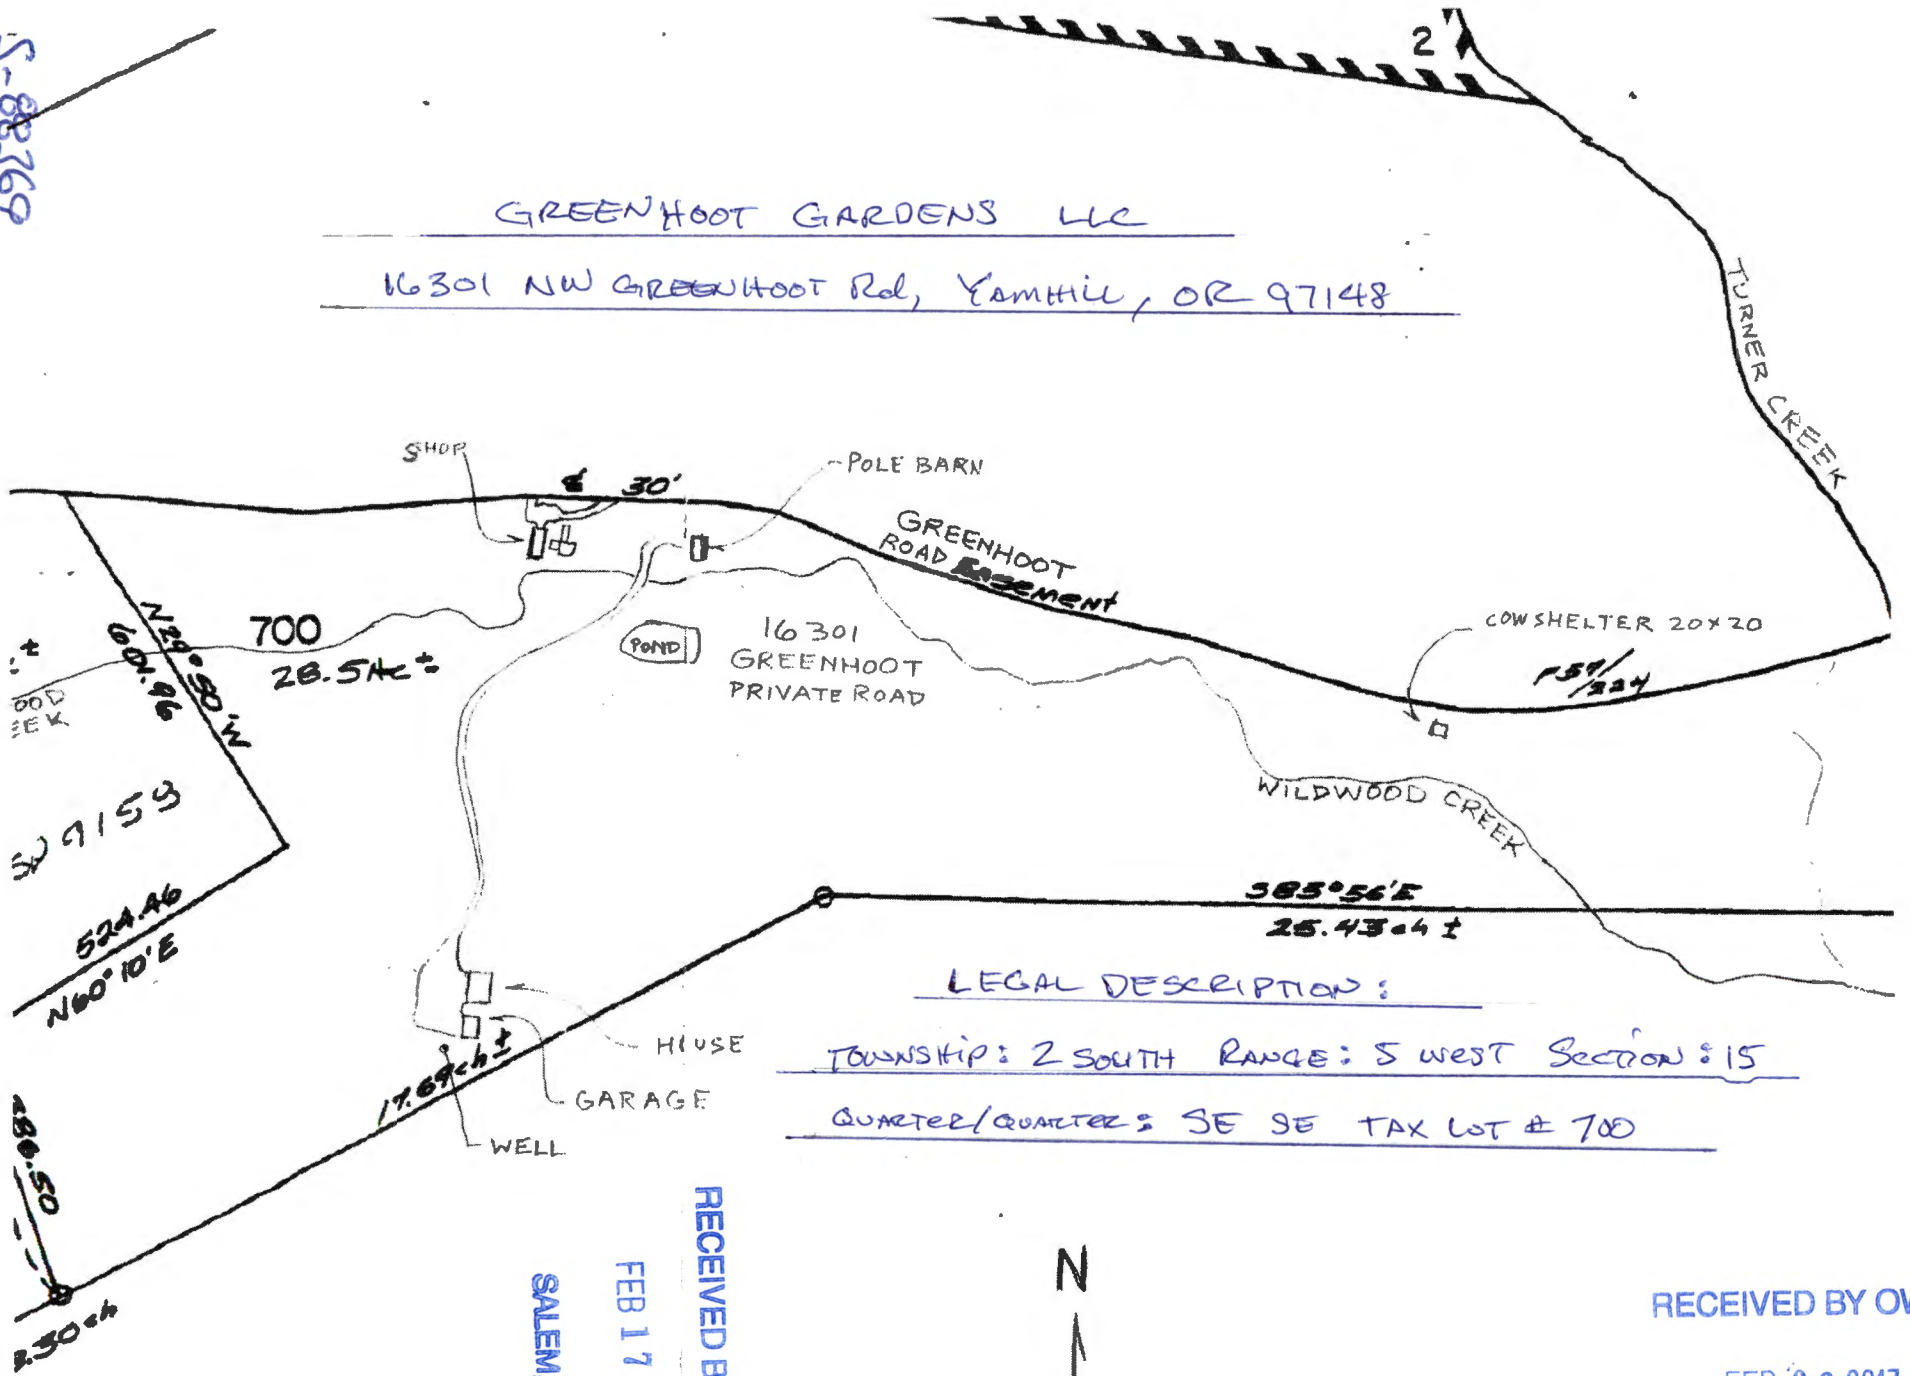 2
GREENHOOT GARDENS LLC
16301 NW GREENHOOT Rd, YAMHILL, OR 97148
TURNER CREEK
SHOP
30'
POLE BARN
GREENHOOT
ROAD EASEMENT
COW SHELTER 20x20
P57/224
N29°50'W
601.96
700
28.5 Ac ±
POND
16301
GREENHOOT
PRIVATE ROAD
WILDWOOD CREEK
9153
524.46
N60°10'E
S85°56'E
25.43 ch ±
LEGAL DESCRIPTION:
TOWNSHIP: 2 SOUTH RANGE: 5 WEST SECTION: 15
QUARTER/QUARTER: SE SE TAX LOT # 700
HOUSE
GARAGE
WELL
17.69 ch ±
286.50
.50 ch
RECEIVED B
FEB 17
SALEM
N
RECEIVED BY OW